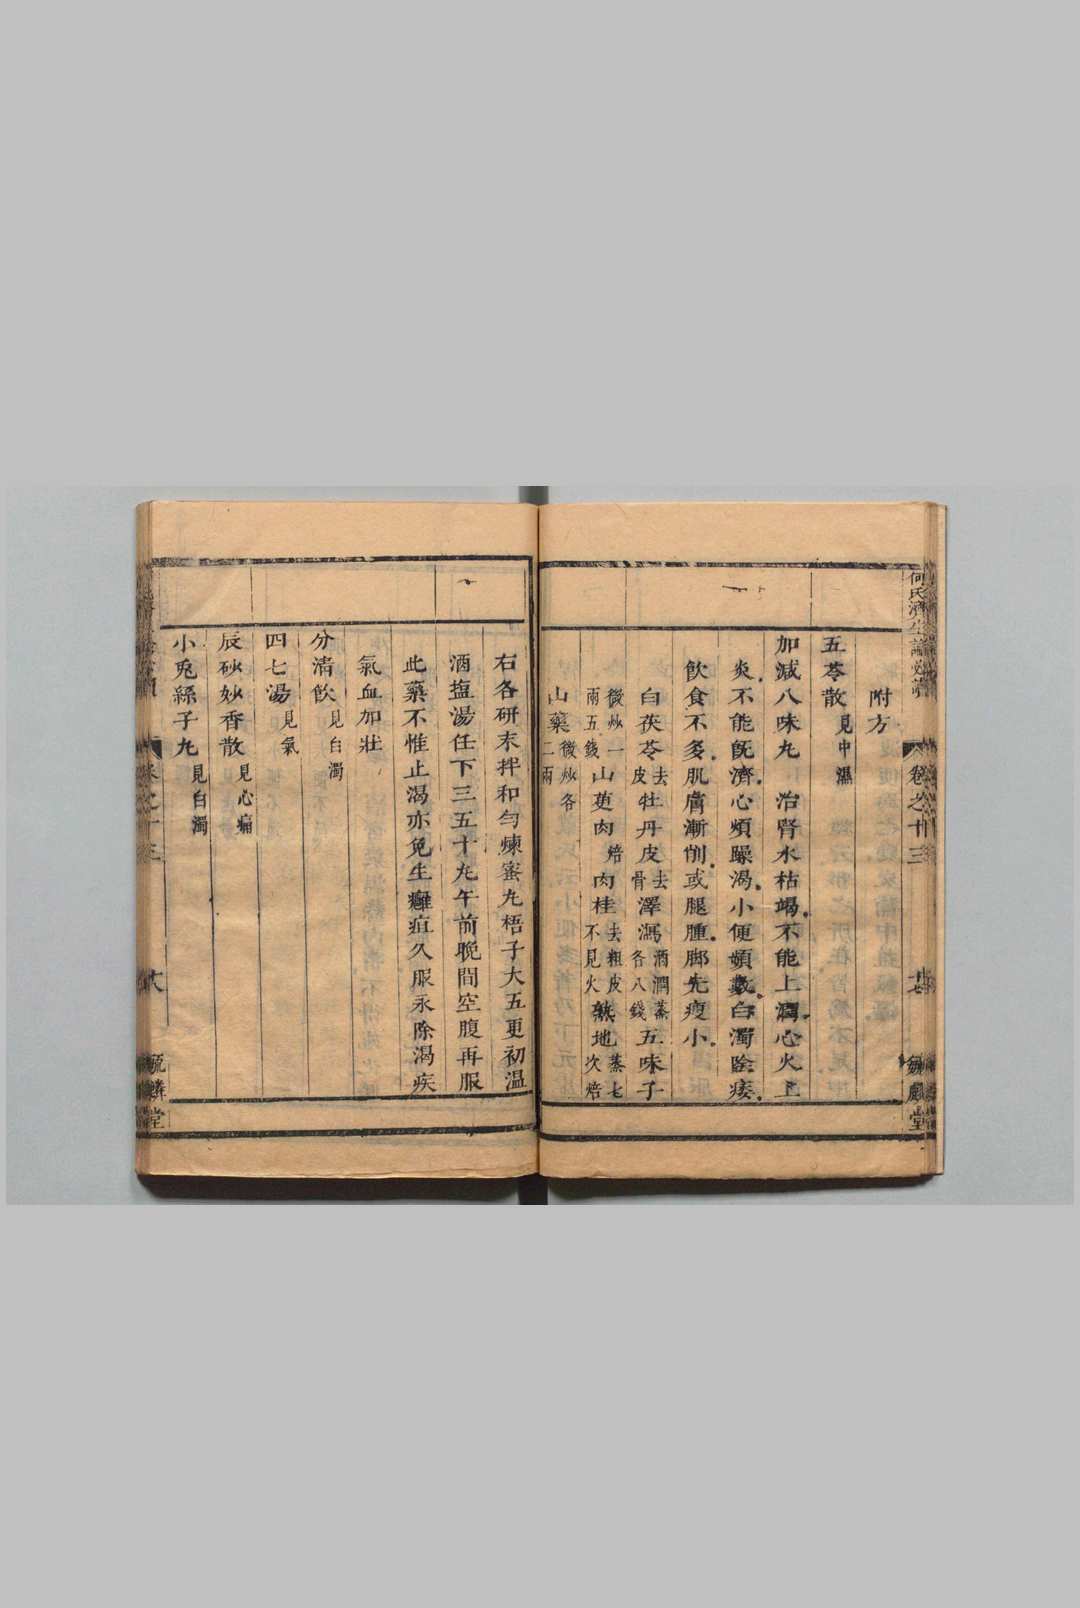 何氏濟生論
卷之廿三
堂
附方
五苓散見中濕
加減八味丸 治腎水枯竭不能上潤心火上
炎不能既濟心煩躁渴小便頻數白濁陰痿
飲食不多肌膚漸削或腿腫脚先瘦小
白茯苓去皮牡丹皮去骨澤瀉酒潤蒸各八錢五味子
微炒一兩五錢山萸肉焙肉桂去粗皮不見火熟地蒸七次焙
山藥微炒各二兩
右各研末拌和勻煉蜜丸梧子大五更初温
酒塩湯任下三五十丸午前晚間空腹再服
此藥不惟止渴亦免生癰疽久服永除渴疾
氣血加壯
分清飲見白濁
四七湯見氣
辰砂妙香散見心痛
小兎絲子丸見白濁
卷之廿三
堂